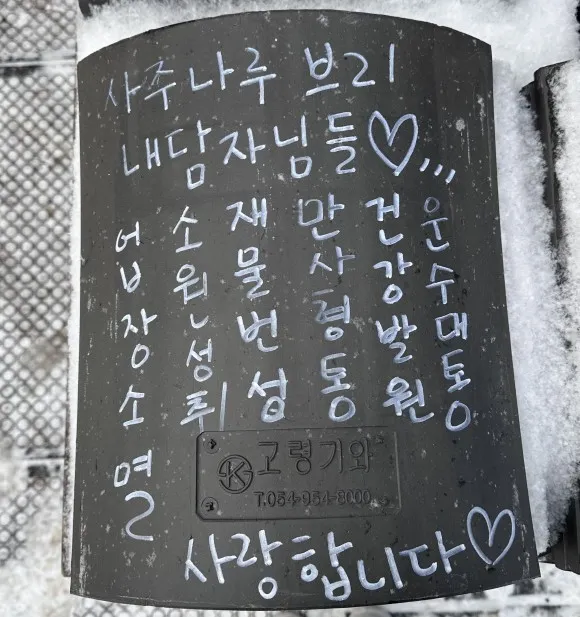 사주나루 브리
내담자님들♡,,,
업장소멸
소원성취
재물번성
만사형통
건강발원
운수대통
K 고령기와
T.054-954-8000
사랑합니다♡